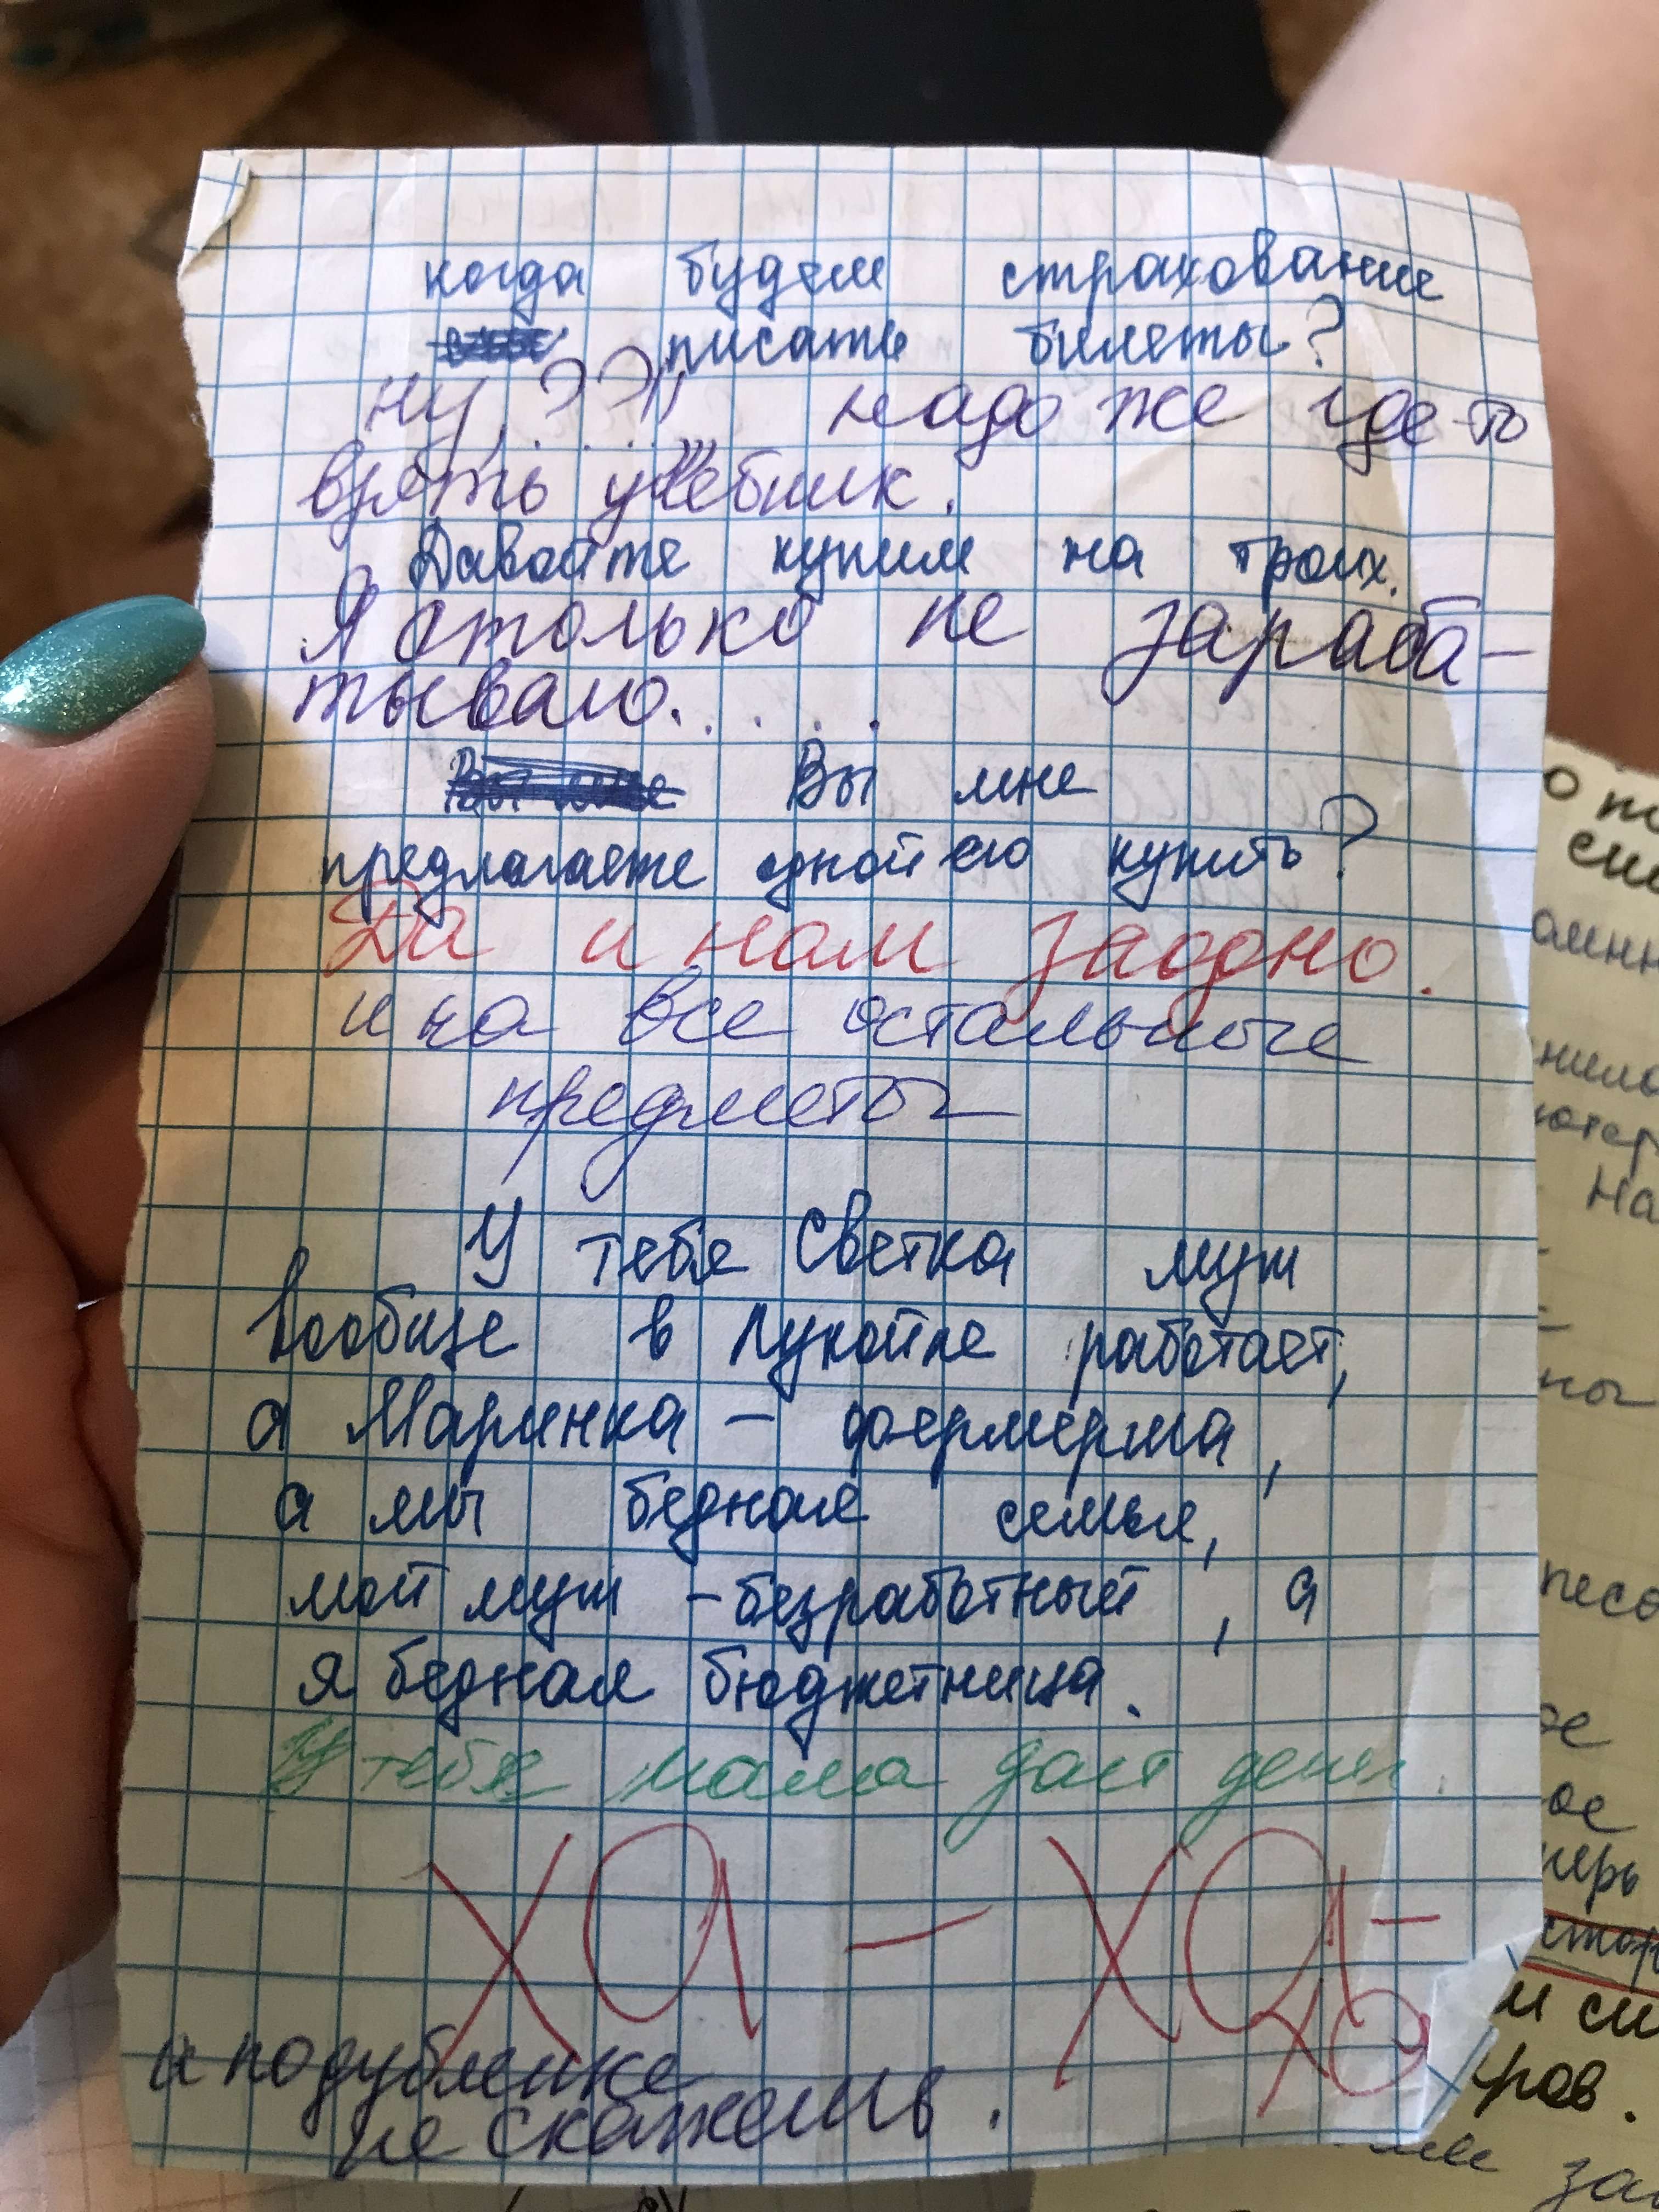 когда будем страхование
писать билеты?
ну, ??!! надо же где-то
взять учебник.
Давайте купим на троих.
Я столько не зараба-
тываю. . . . .
Вы мне Вы мне
предлагаете одной его купить?
Да и нам заодно.
и на все остальные
предметы
У тебя Светка муж
вообще в Лукойле работает,
а Маринка - фермерша,
а мы бедная семья,
мой муж - безработный, а
я бедная бюджетница.
У тебя мама дает деньги.
ХА - ХА-
ХА
и по дубленке
не скажешь.